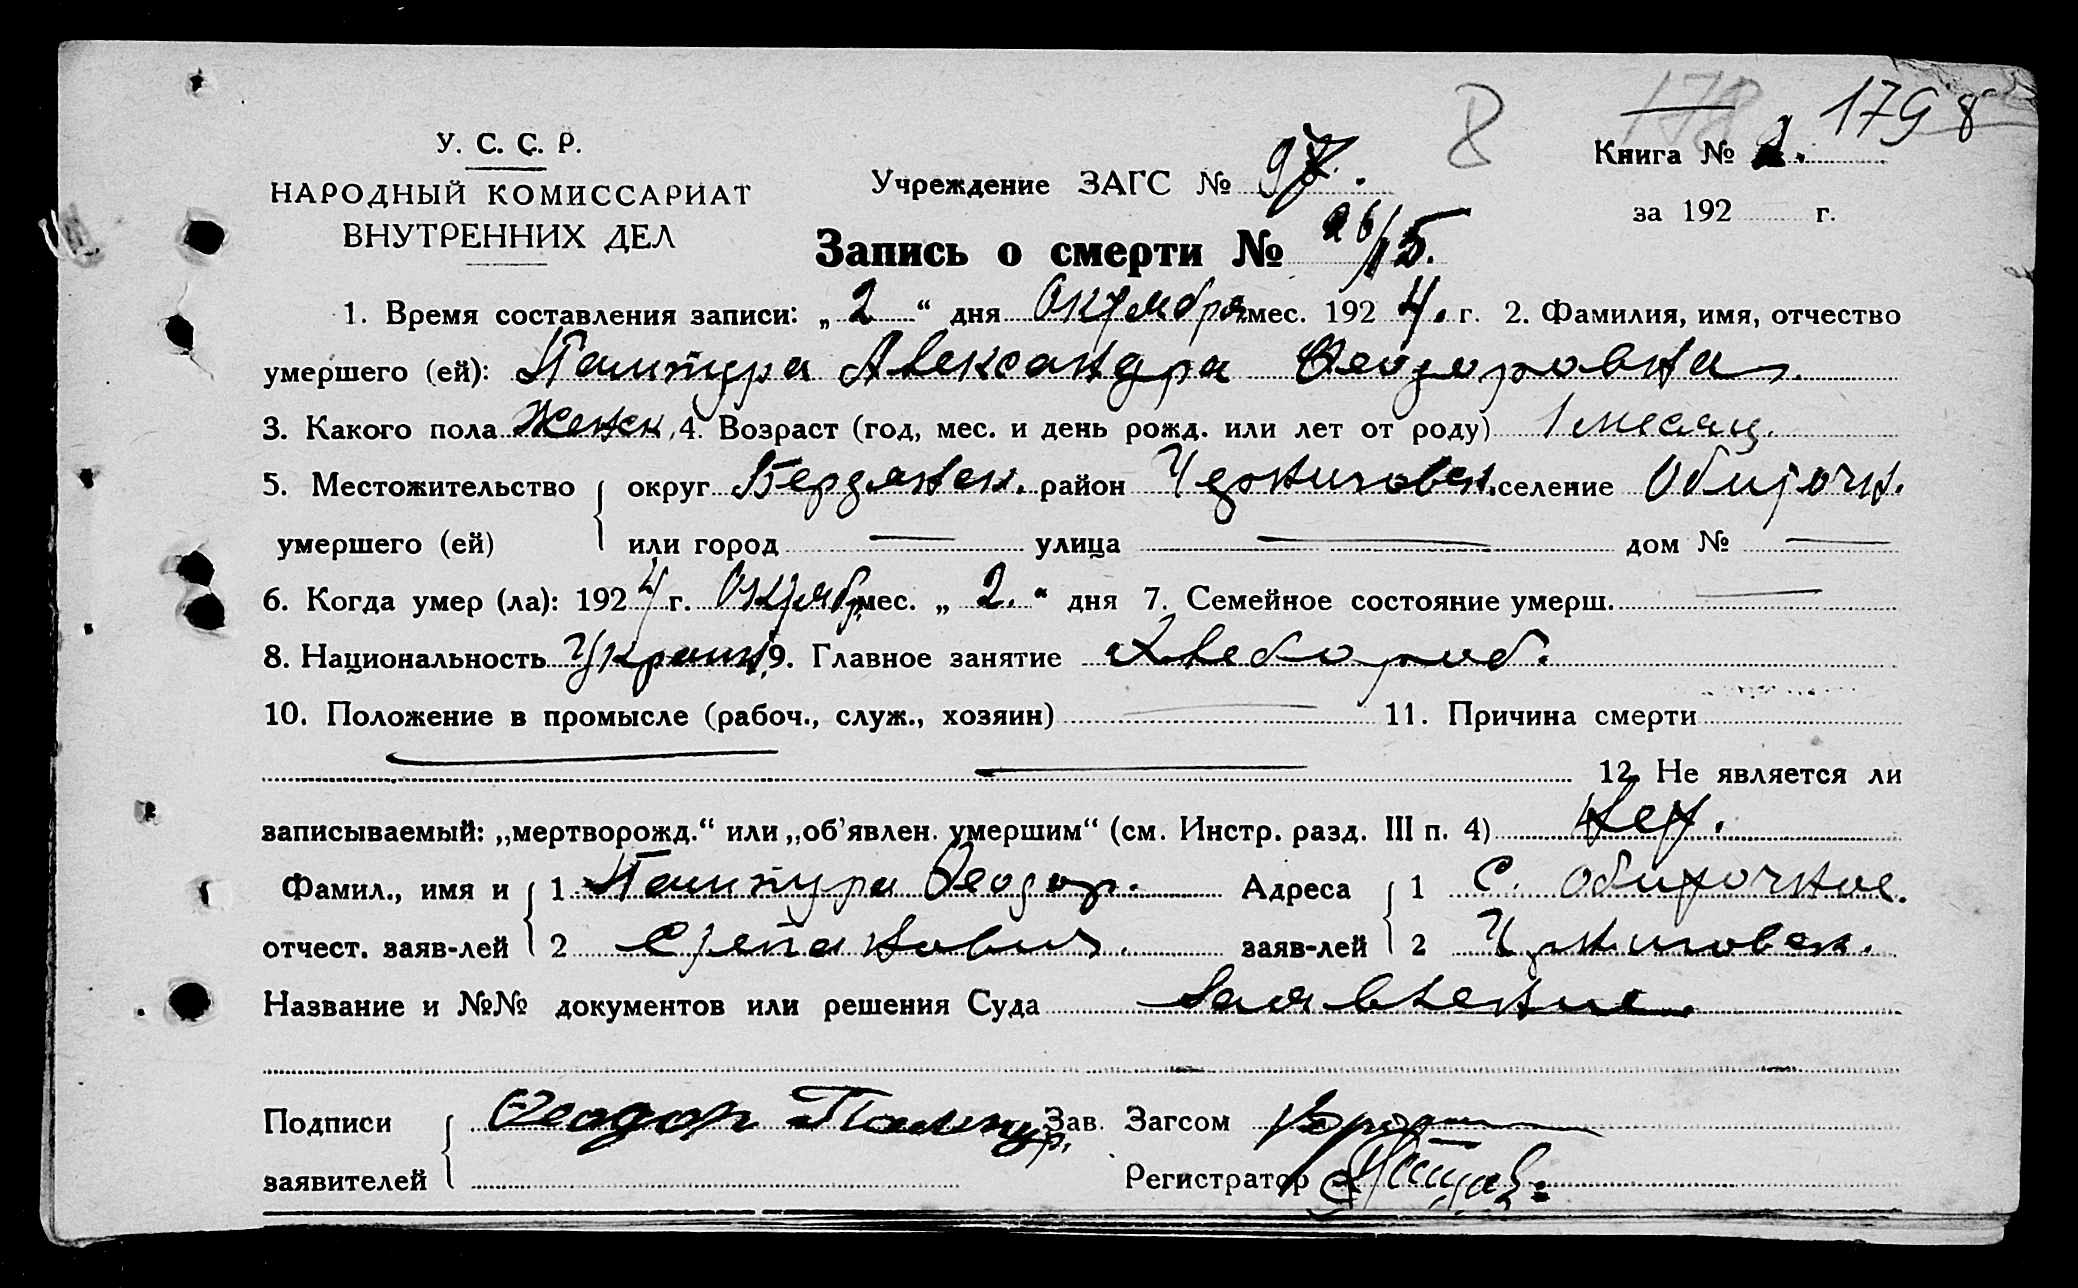 179 8
178
8
У. С. С. Р.
НАРОДНЫЙ КОМИССАРИАТ
ВНУТРЕННИХ ДЕЛ
Учреждение ЗАГС № 97.
Книга №
за 192 г.
Запись о смерти № 26/15.
1. Время составления записи: „2“ дня Октября мес. 1924. г. 2. Фамилия, имя, отчество
умершего (ей): Паштура Александра Феодоровна
3. Какого пола Женск. 4. Возраст (год, мес. и день рожд. или лет от роду) 1 месяц.
5. Местожительство округ Бердянск. район Черниговск. селение Обиточн.
умершего (ей) или город — улица — дом № —
6. Когда умер (ла): 1924 г. Октябр. мес. „2.“ дня 7. Семейное состояние умерш. —
8. Национальность Украин. 9. Главное занятие Хлебороб.
10. Положение в промысле (рабоч., служ., хозяин) — 11. Причина смерти
— — 12. Не является ли
записываемый: „мертворожд.“ или „об’явлен. умершим“ (см. Инстр. разд. III п. 4) Нет.
Фамил., имя и 1 Паштура Феодор. Адреса 1 С. Обиточное.
отчест. заяв-лей 2 Степанович. заяв-лей 2 Черниговск.
Название и №№ документов или решения Суда Заявление.
Подписи Феодор Паштур. Зав. Загсом
заявителей Регистратор